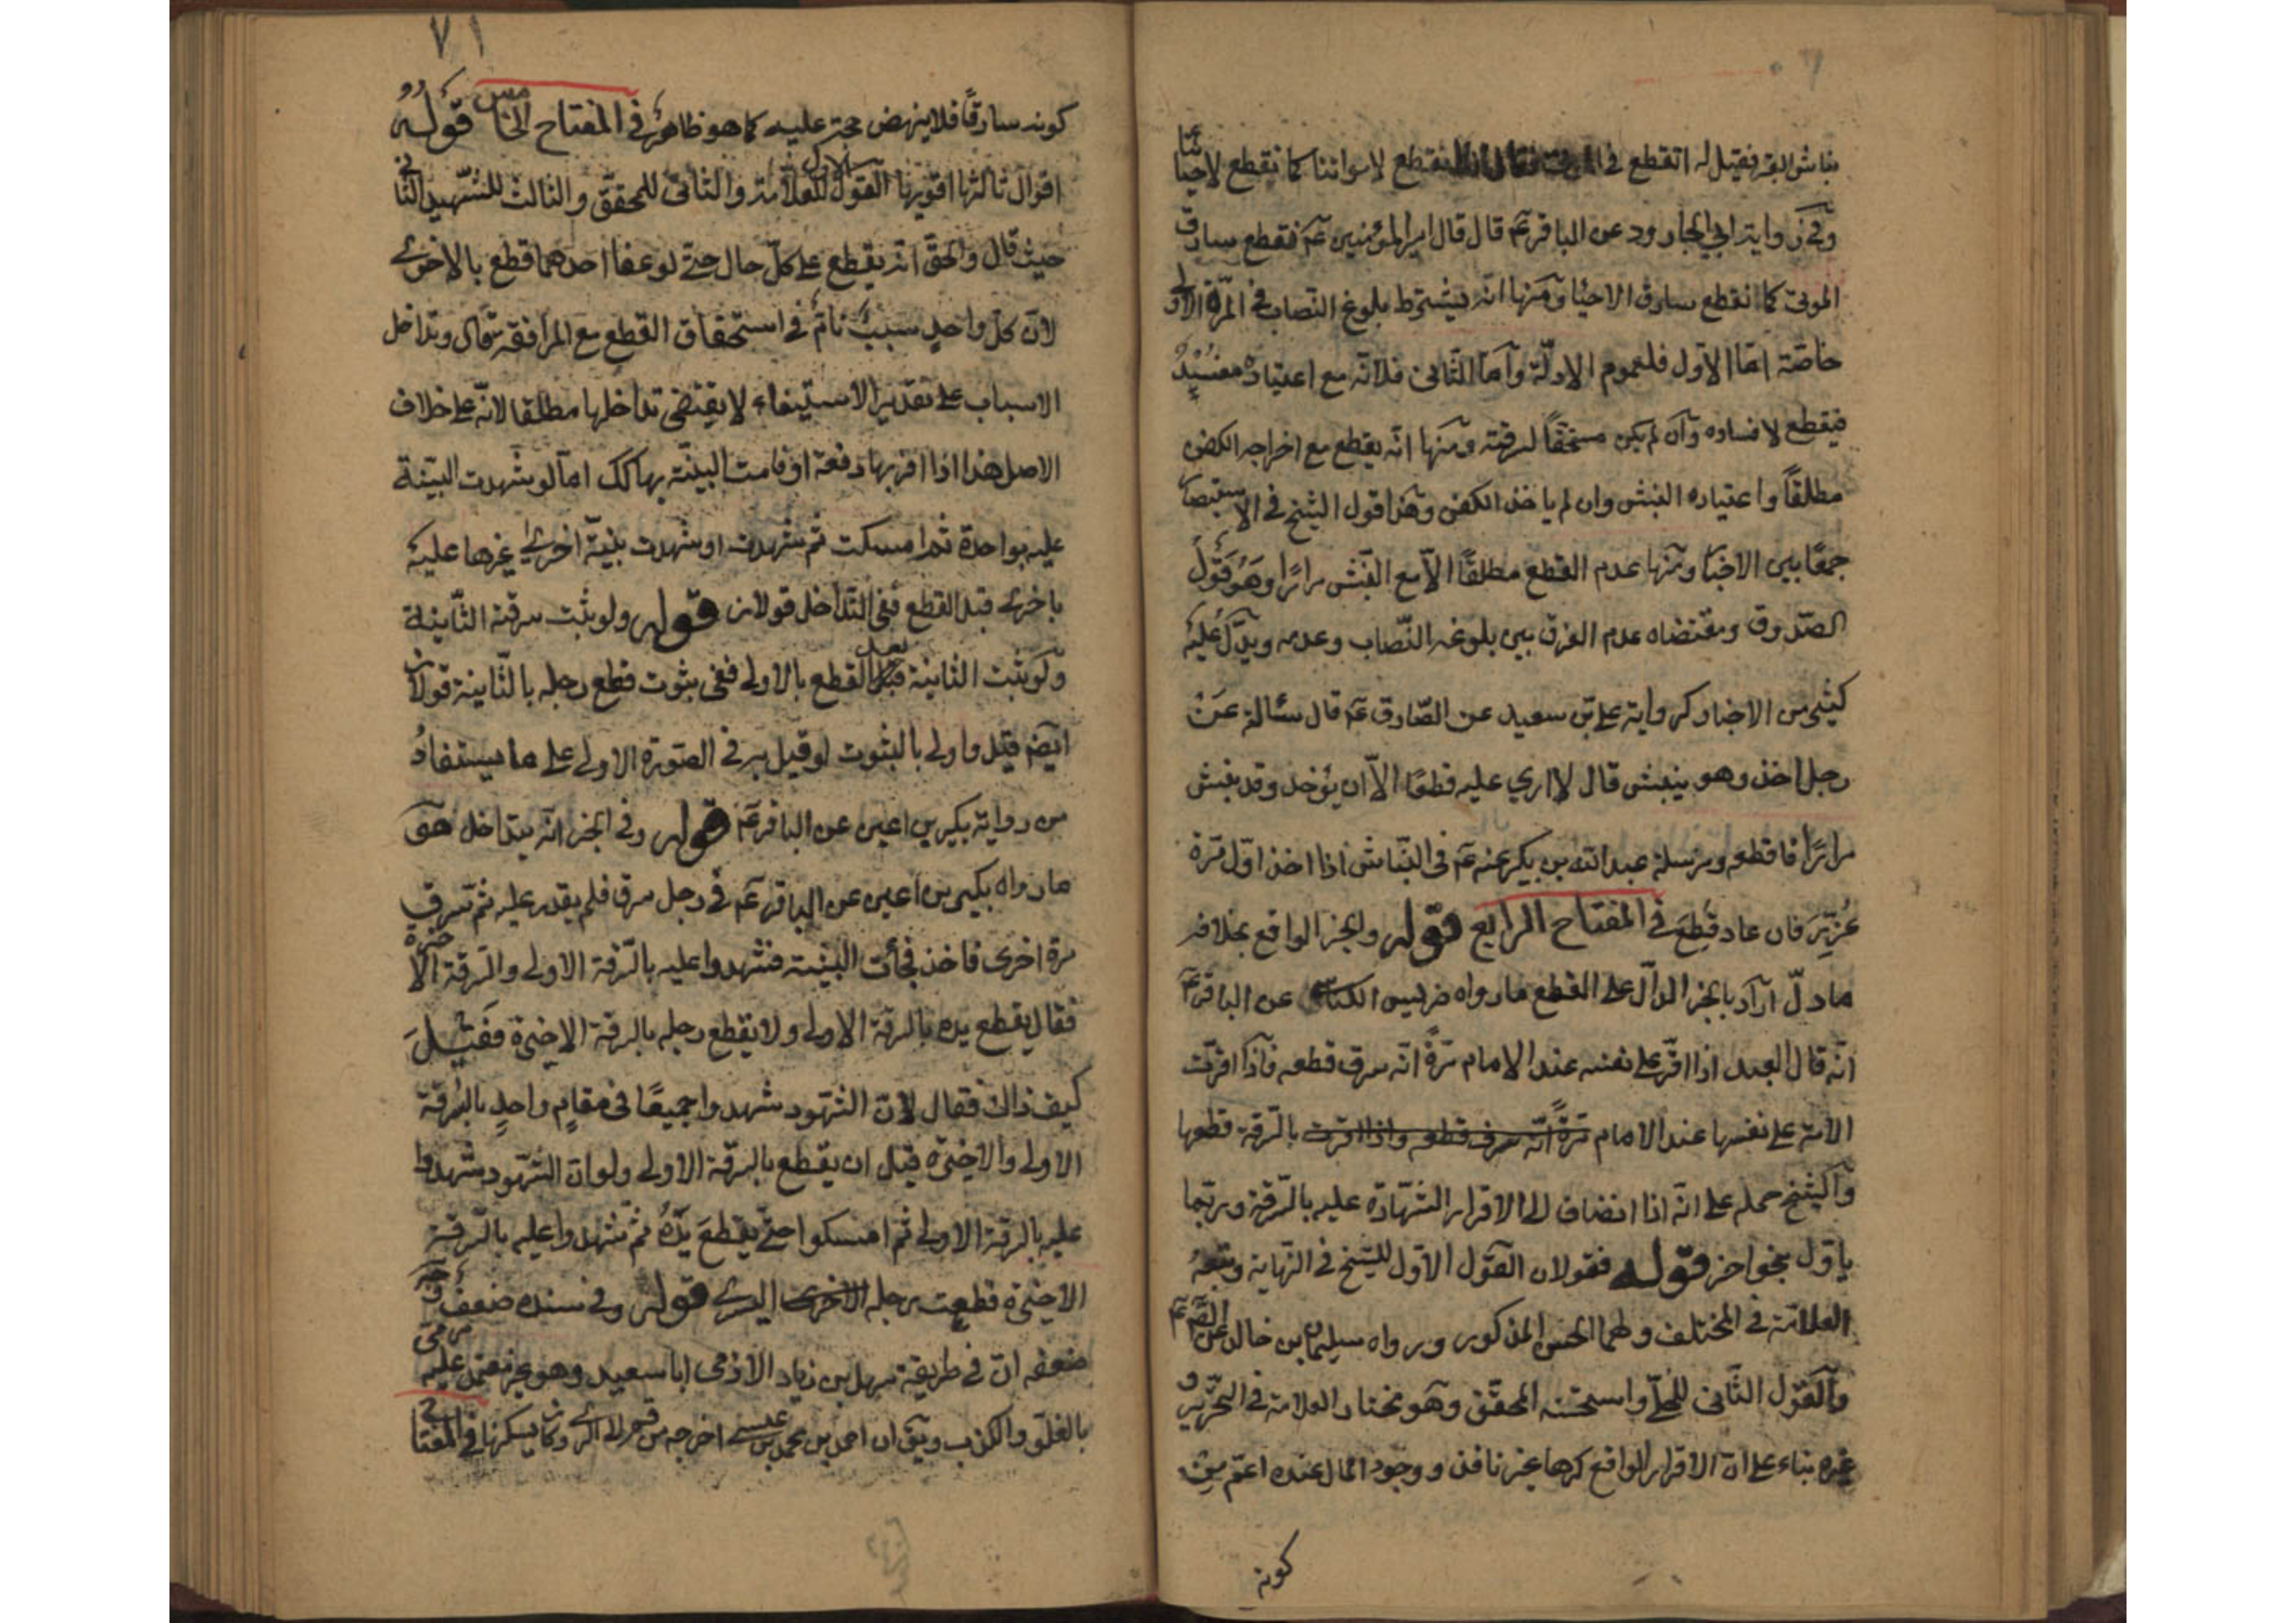 نباش القبر فقيل له اتقطع في الموتى فقال انا لنقطع لامواتنا كما نقطع لاحيائنا
وفي رواية ابي الجارود عن الباقر عم قال قال امير المؤمنين عم نقطع سارق
الموتى كما نقطع سارق الاحيا ومنها انه يشترط بلوغ النصاب في المرة الاولى
خاصة اما الاول فلعموم الادلة واما الثاني فلانه مع اعتياده مفسد
فيقطع لافساده وان لم يكن مستحقا لسرقته ومنها انه يقطع مع اخراجه الكفن
مطلقا واعتياده النبش وان لم ياخذ الكفن وهذا قول الشيخ في الاستبصار
جمعا بين الاخبار ومنها عدم القطع مطلقا الا مع النبش مرارا وهو قول
الصدوق ومقتضاه عدم الفرق بين بلوغه النصاب وعدمه ويدل عليه
كثير من الاخبار كرواية علي بن سعيد عن الصادق عم قال سئالته عن
رجل اخذ وهو ينبش قال لا اري عليه قطعا الا ان يؤخذ وقد نبش
مرارا فاقطعه ومرسلة عبدالله بن بكير عنه عم في النباش اذا اخذ اول مرة
عزر فان عاد قطع في المفتاح الرابع قوله والخبر الواقع بخلافه
ما دل اراد بالخبر الدال على القطع مارواه ضريس الكناسي عن الباقر عم
انه قال العبد اذا اقر على نفسه عند الامام مرة انه سرق قطعه فاذا اقرت
الامة على نفسها عند الامام مرة انه سرق قطعه واذا اقرت بالسرقة قطعها
والشيخ حمله على انه اذا انضاف الى الاقرار الشهادة عليه بالسرقة وربما
ياول بنحو اخر قوله فقولان القول الاول للشيخ في النهاية وتبعه
العلامة في المختلف ولهما الحسن المذكور ورواه سليمان بن خالد عن الص عم
والقول الثاني للحلي واستحسنه المحقق وهو مختار العلامة في التحرير و
غيره بناء على ان الاقرار الواقع كرها غير نافذ ووجود المال عنده اعم من
كونه
٧١
كونه سارقا فلا ينهض حجة عليه كما هو ظاهر في المفتاح الخامس قوله
اقوال ثالثها اقويها القول الاول للعلامة والثاني للمحقق والثالث للشهيد الثاني
حيث قال والحق انه يقطع على كل حال حتى لو عفا احدهما قطع بالاخرى
لان كل واحد سبب تام في استحقاق القطع مع المرافقة قال وتداخل
الاسباب على تقدير الاستيفاء لا يقتضي تداخلها مطلقا لانه على خلاف
الاصل هذا اذا اقر بها دفعة او قامت البينة بها كك اما لو شهدت البينة
عليه بواحدة ثم امسكت ثم شهدت او شهدت بينة اخرى غيرها عليه
باخرى قبل القطع ففي التداخل قولان قوله ولو ثبت سرقته الثانية
ولو ثبت الثانية قبل بعد القطع بالاولى ففي ثبوت قطع رجله بالثانية قولان
ايضم قيل واولى بالثبوت لو قيل به في الصورة الاولى على ما يستفاد
من رواية بكير بن اعين عن الباقر عم قوله وفي الخبر انه يتداخل هو
مارواه بكير بن اعين عن الباقر عم في رجل سرق فلم يقدر عليه ثم سرق
مرة اخرى فاخذ فجائت البينة فشهدوا عليه بالسرقة الاولى والسرقة الاخيرة
فقال يقطع يده بالسرقة الاولى ولا يقطع رجله بالسرقة الاخيرة فقيل
كيف ذاك فقال لان الشهود شهدوا جميعا في مقام واحد بالسرقة
الاولى والاخيرة قبل ان يقطع بالسرقة الاولى ولو ان الشهود شهدوا
عليه بالسرقة الاولى ثم امسكوا حتى يقطع يده ثم شهدوا عليه بالسرقة
الاخيرة قطعت رجله الاخرى اليسرى قوله وفي سنده ضعف وجه
ضعفه ان في طريقة سهل بن زياد الادمي ابا سعيد وهو غير معتمد عليه مرمى
بالغلو والكذب ويق ان احمد بن محمد بن عيسى اخرجه من قم الى الري وكان يسكنها في المفتاح